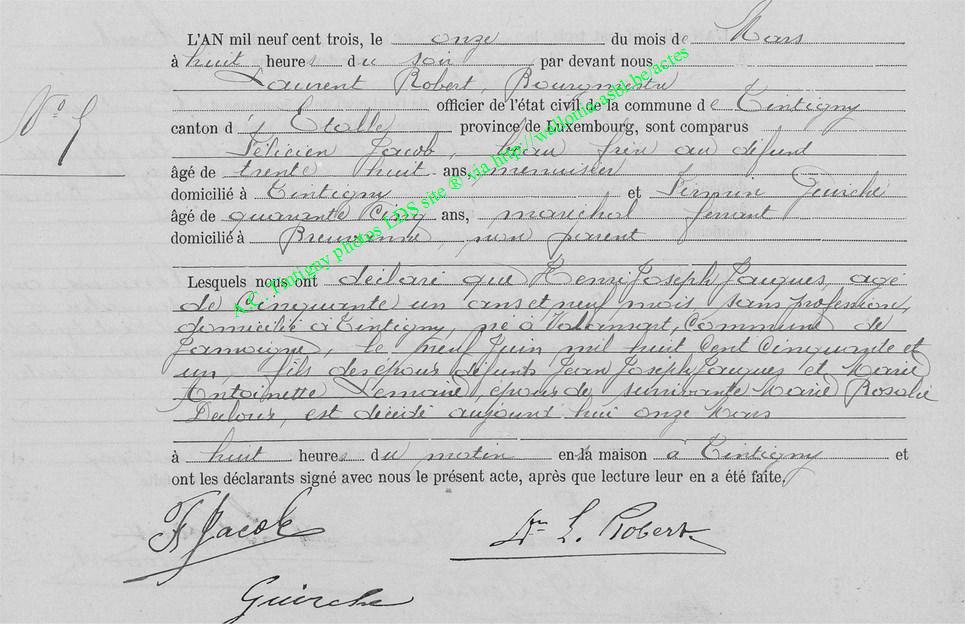 L'AN mil neuf cent trois, le onze du mois de Mars
à huit heures du soir par devant nous
Laurent Robert, Bourgmestre
officier de l'état civil de la commune de Tintigny
canton d' Etalle province de Luxembourg, sont comparus
Félicien Jacob, beau frère au défunt
âgé de trente huit ans, menuisier
domicilié à Tintigny et Firmin Guirche
âgé de quarante cinq ans, maréchal ferrant
domicilié à Breuvanne, non parent
Lesquels nous ont déclaré que Henri Joseph Jaques, agé
de Cinquante un ans et neuf mois sans profession,
domicilié à Tintigny, né à Valansart, Commune de
Jamoigne, le neuf Juin mil huit Cent Cinquante et
un, fils des époux défunts Jean Joseph Jaques et Marie
Antoinette Lemaire, époux de survivante Marie Rosalie
est décédé aujourd hui onze Mars
à huit heures du matin en la maison à Tintigny et
ont les déclarants signé avec nous le présent acte, après que lecture leur en a été faite.
No 5
F Jacob
L. Robert
Guirche
A.C. Tintigny photos LDS site ® via http://wallonia-asbl.be/actes